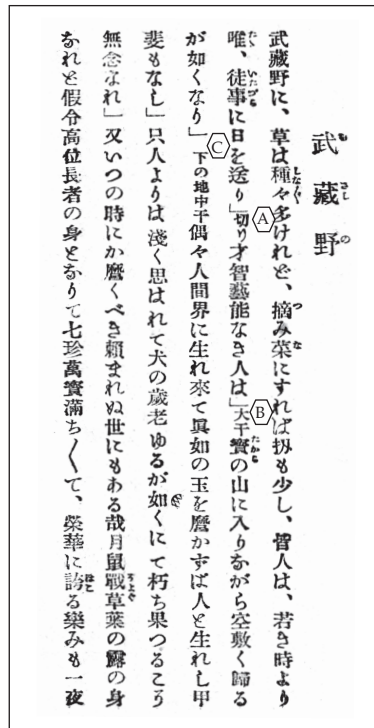 武藏野
武藏野に、草は種々多けれど、摘み菜にすれば扨も少し、皆人は、若き時より
唯、徒事に日を送り」Ⓐ切り才智藝能なき人は」Ⓑ大干寳の山に入りながら空敷く歸る
が如くなり」Ⓒ下の地中干偶々人間界に生れ來て眞如の玉を磨かずば人と生れし甲
斐もなし」只人よりは淺く思はれて犬の歳老ゆるが如くにて朽ち果つるこそ
無念なれ」又いつの時にか磨くべき賴まれぬ世にもある哉月鼠戰草葉の露の身
なれど假令高位長者の身となりて七珍萬寳滿ち〱て、榮華に誇る樂みも一夜